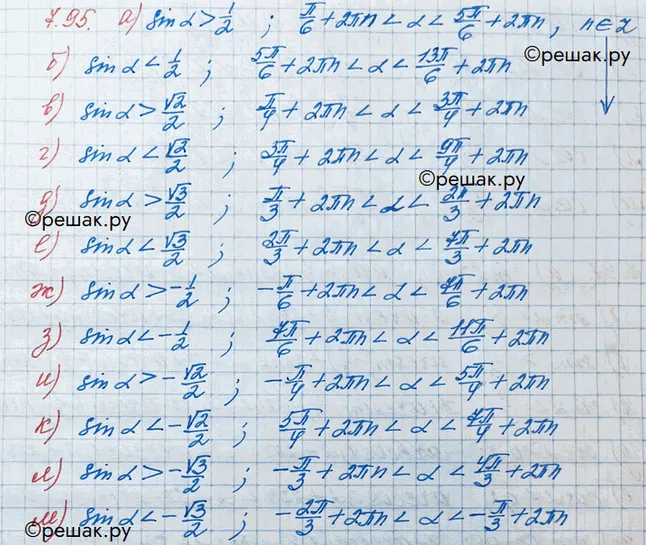 7.95. а) sinα > 1/2 ; π/6 + 2πn < α < 5π/6 + 2πn, n∈Z
©решак.ру
б) sinα < 1/2 ; 5π/6 + 2πn < α < 13π/6 + 2πn
в) sinα > √2/2 ; π/4 + 2πn < α < 3π/4 + 2πn
г) sinα < √2/2 ; 3π/4 + 2πn < α < 9π/4 + 2πn
©решак.ру
д) sinα > √3/2 ; π/3 + 2πn < α < 2π/3 + 2πn
©решак.ру
е) sinα < √3/2 ; 2π/3 + 2πn < α < 7π/3 + 2πn
ж) sinα > -1/2 ; -π/6 + 2πn < α < 7π/6 + 2πn
з) sinα < -1/2 ; 7π/6 + 2πn < α < 11π/6 + 2πn
и) sinα > -√2/2 ; -π/4 + 2πn < α < 5π/4 + 2πn
к) sinα < -√2/2 ; 5π/4 + 2πn < α < 7π/4 + 2πn
л) sinα > -√3/2 ; -π/3 + 2πn < α < 4π/3 + 2πn
м) sinα < -√3/2 ; -2π/3 + 2πn < α < -π/3 + 2πn
©решак.ру
©решак.ру